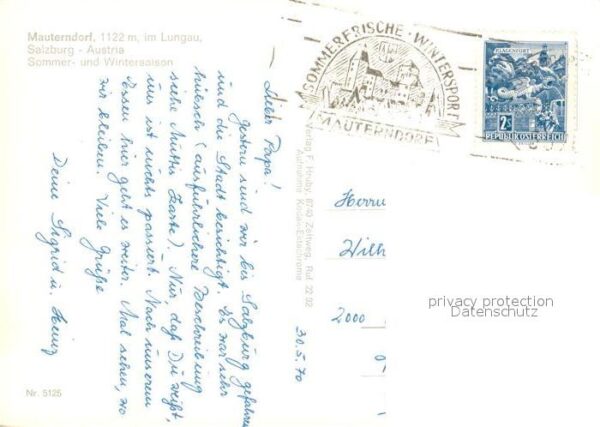 Mauterndorf, 1122 m, im Lungau,
Salzburg - Austria
Sommer- und Wintersaison
SOMMERFRISCHE · WINTERSPORT
MAUTERNDORF
KLAGENFURT
2S
REPUBLIK ÖSTERREICH
Lieber Papa!
Gestern sind wir bis Salzburg gefahren
und die Stadt besichtigt. Es war sehr
hübsch (ausführlichere Beschreibung
siehe Muttis Karte). Nur daß Du weißt,
uns ist nichts passiert. Nach unserem
Essen hier geht es weiter. Mal sehen, wo
wir bleiben. Viele Grüße
Deine Sigrid u. Heinz
30.5.70
Verlag F. Hruby 8740 Zeltweg, Ruf 22 32
Aufnahme Kodak-Ektachrome
Herrn
Wilh
2000
privacy protection
Datenschutz
Nr. 5125